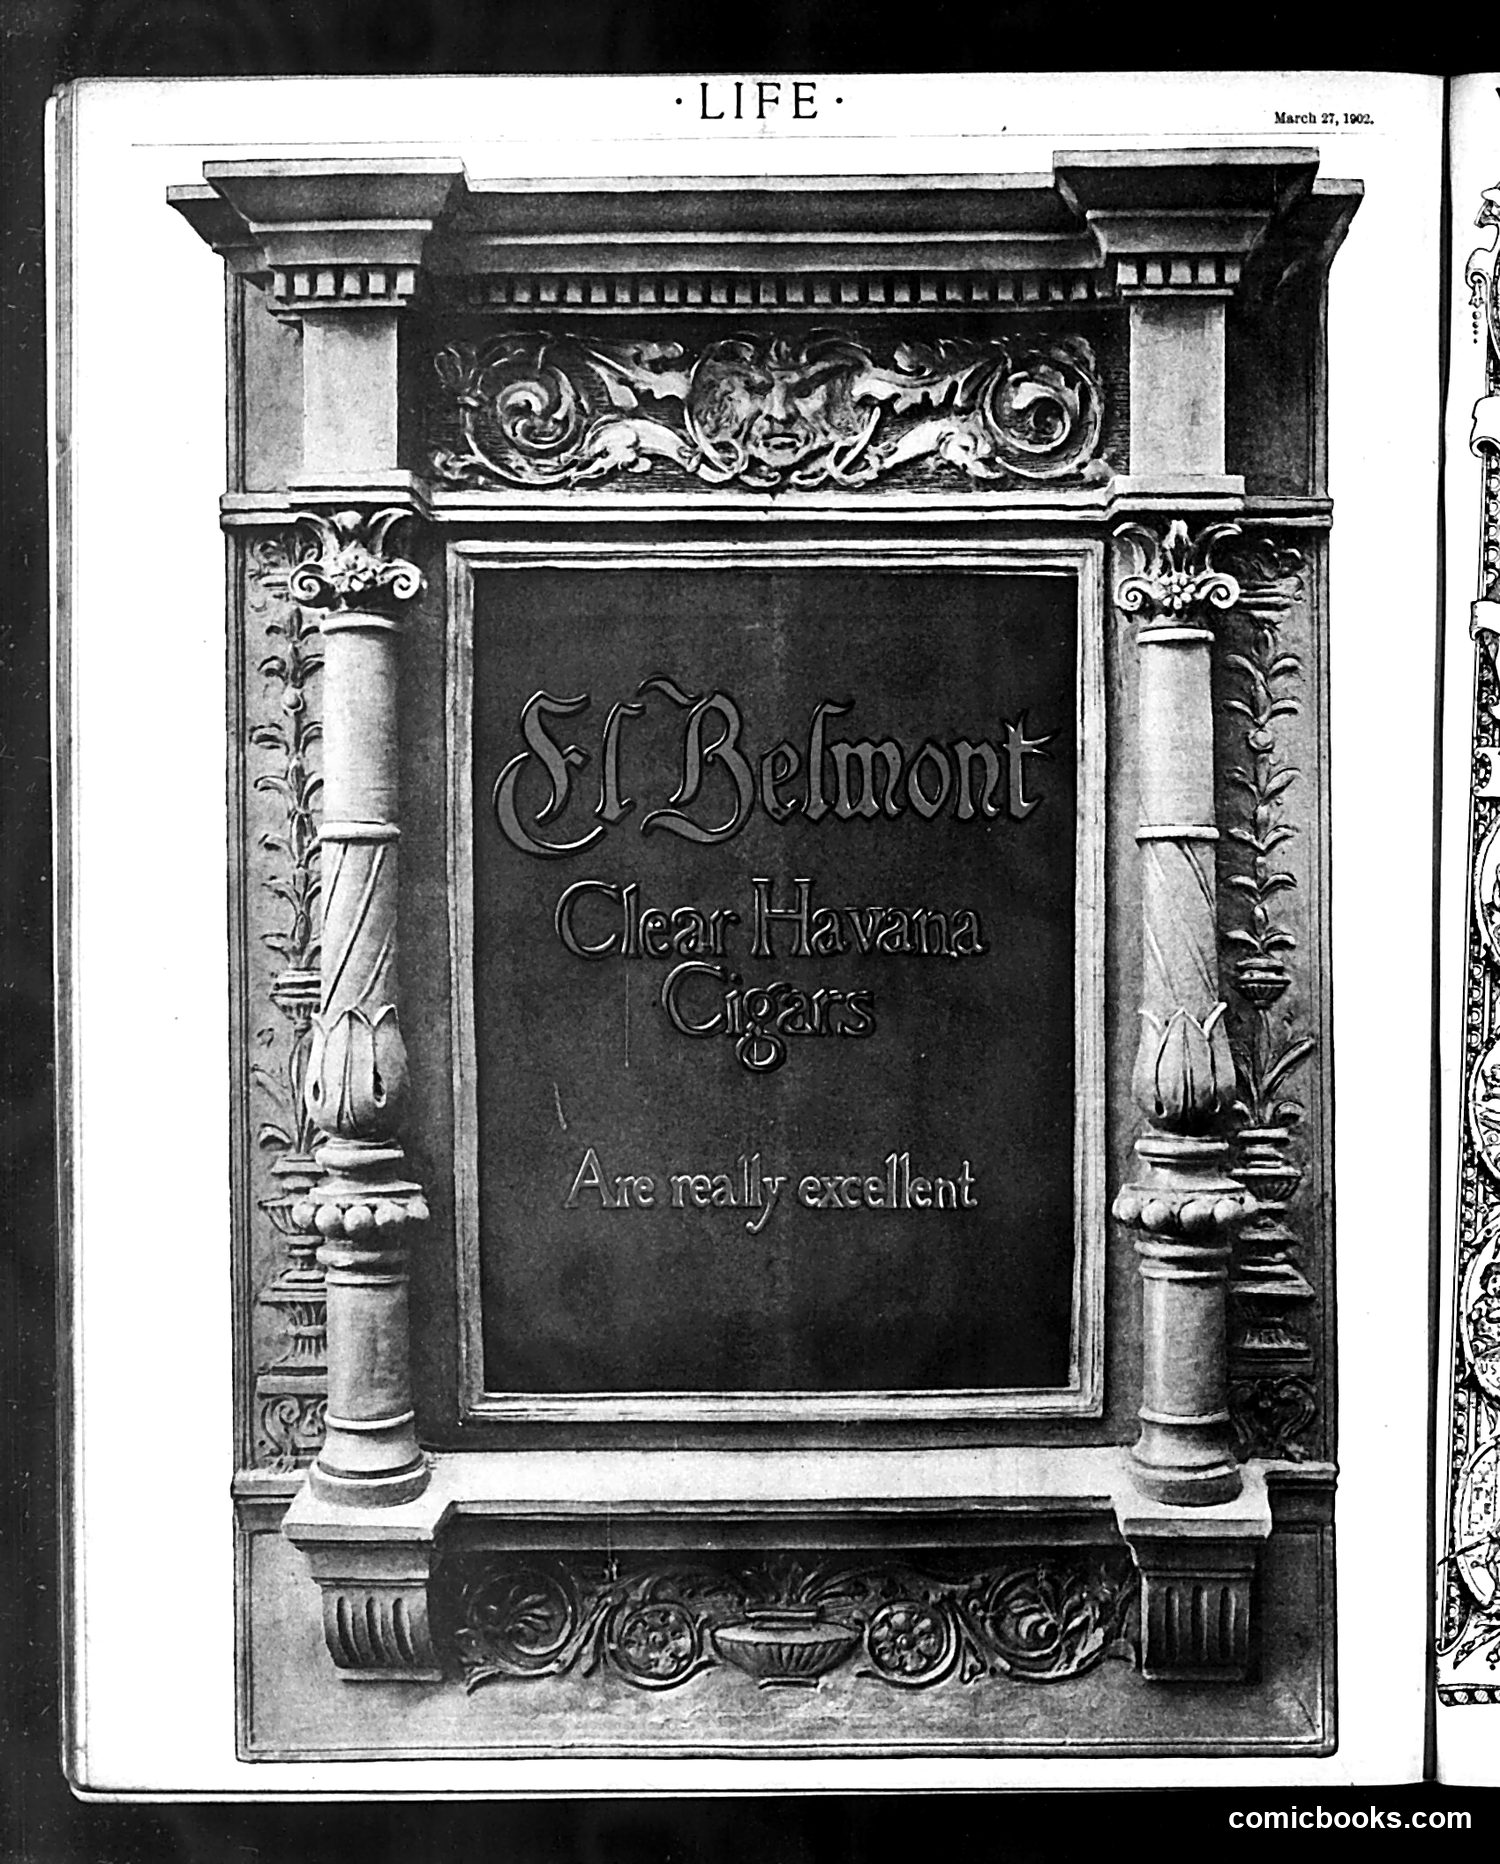 · LIFE ·
March 27, 1902.
El Belmont
Clear Havana
Cigars
Are really excellent
comicbooks.com